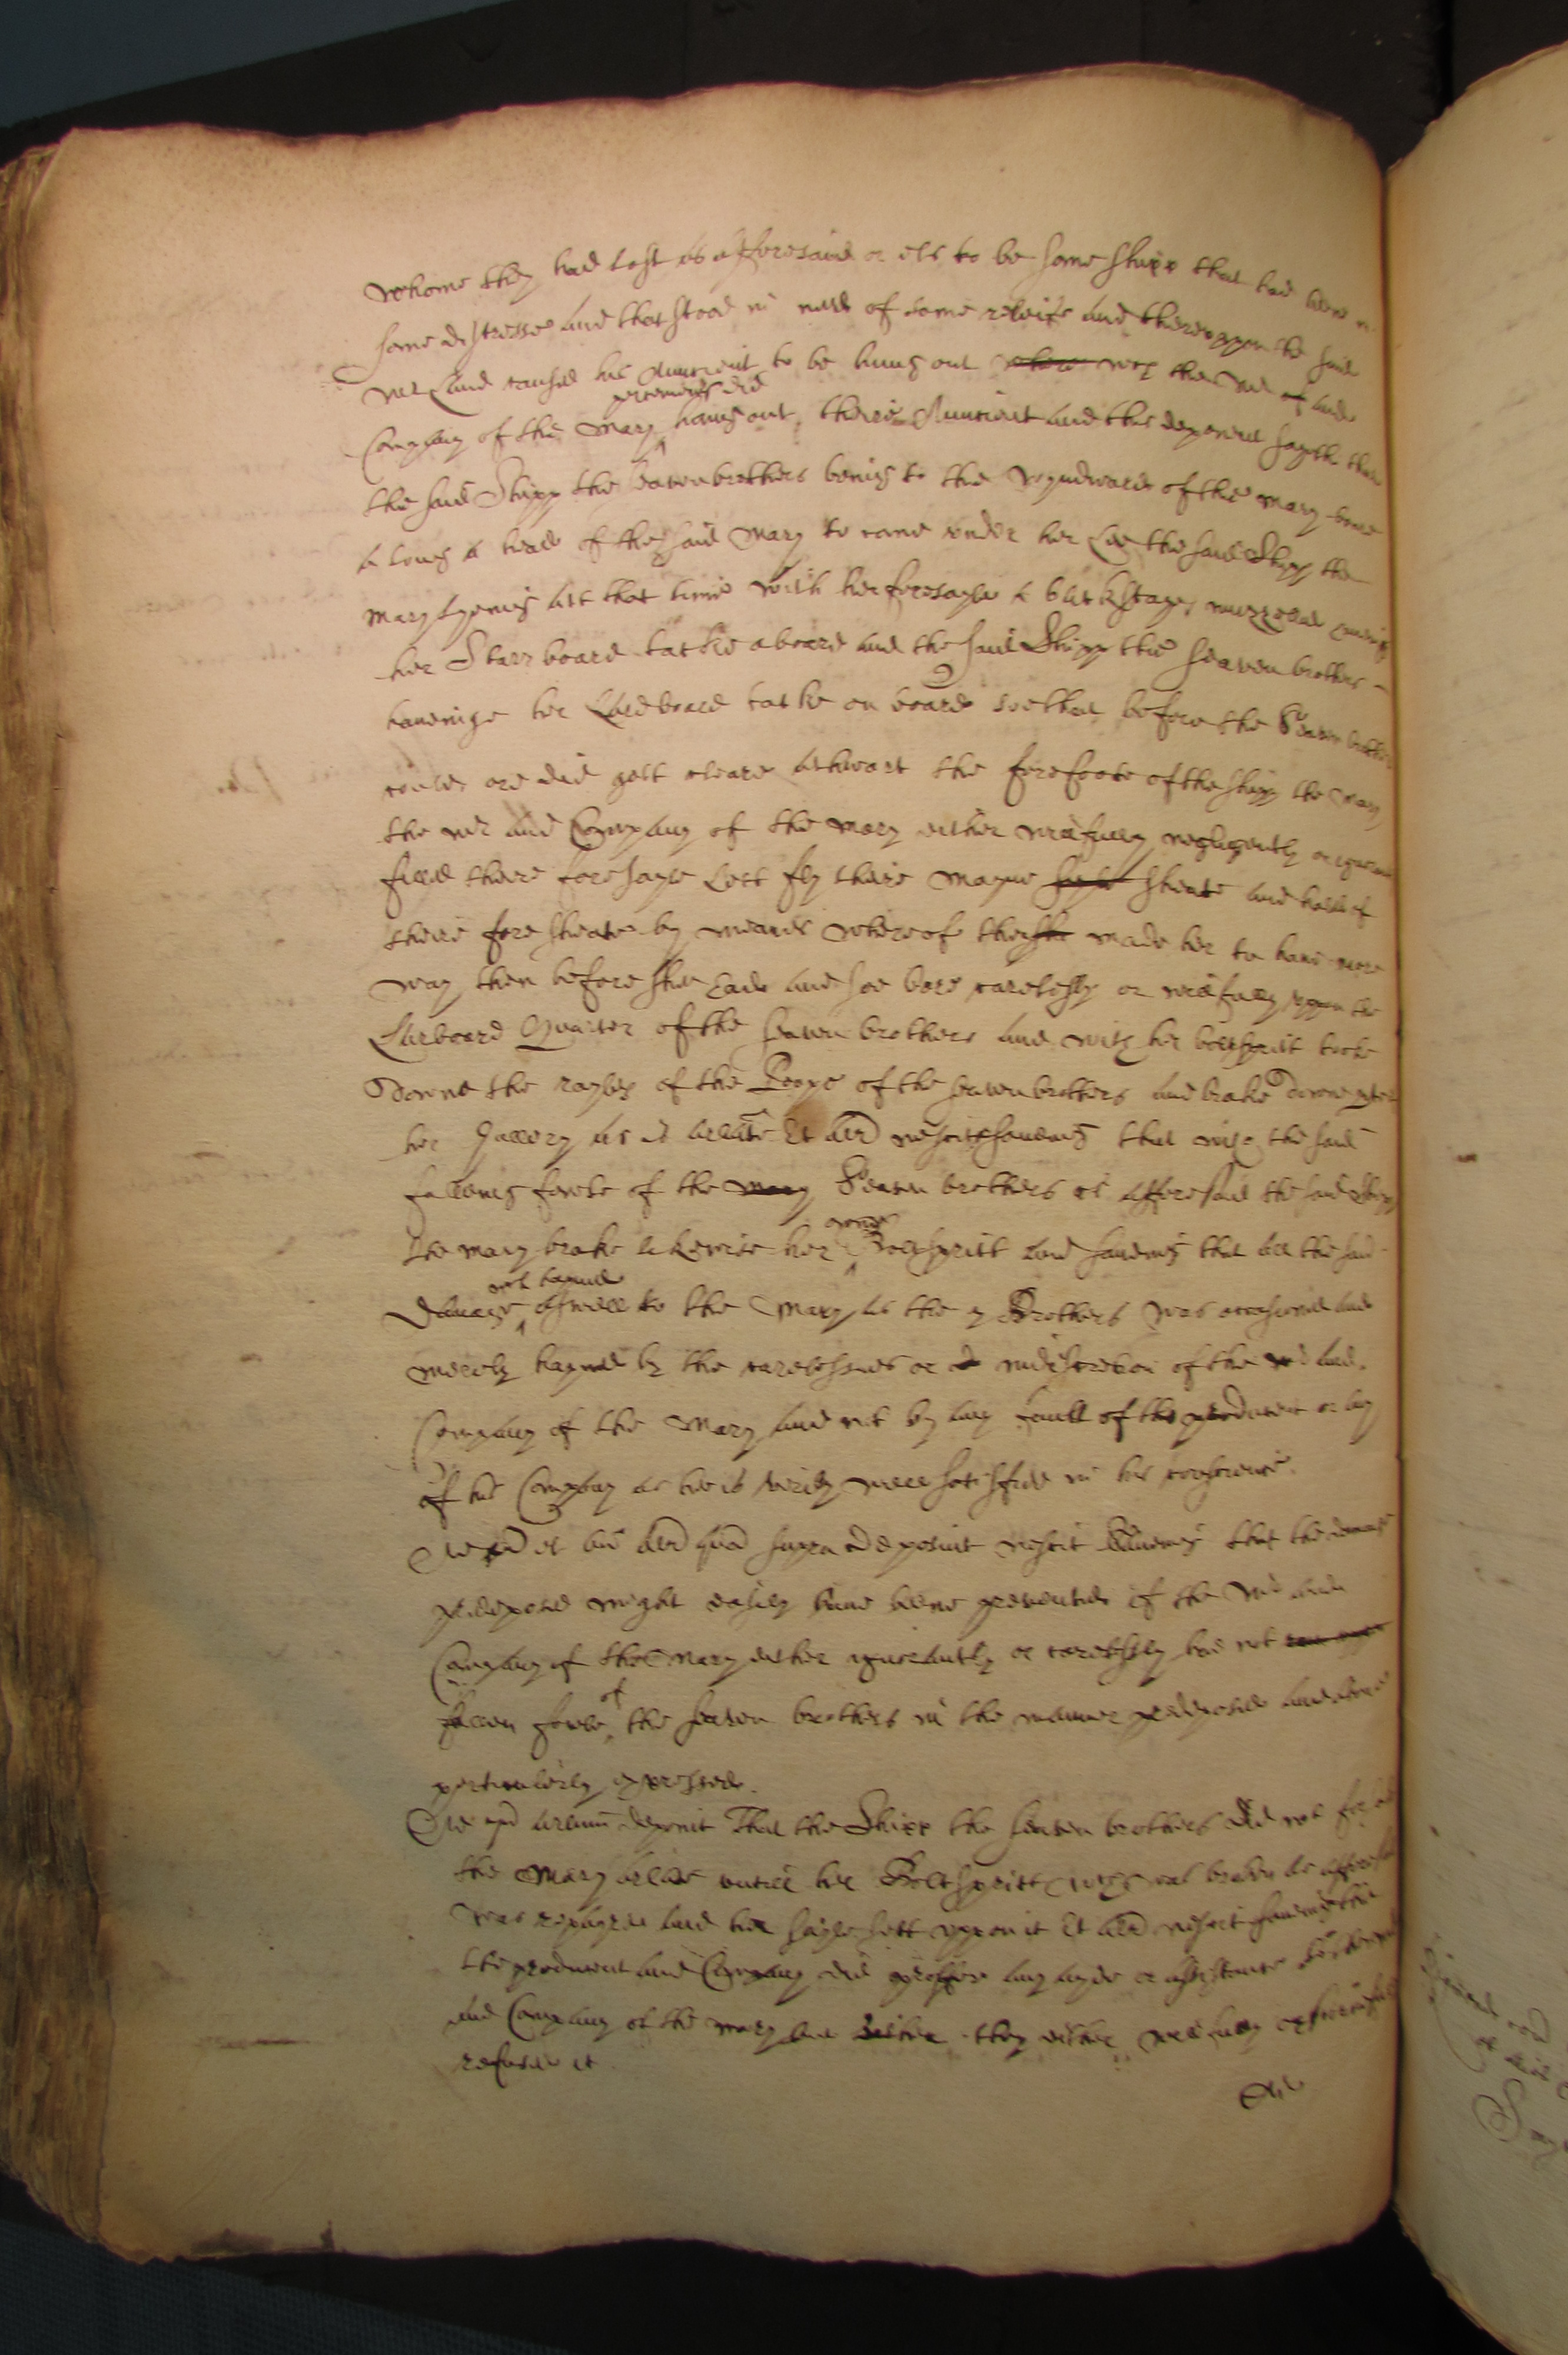 whome they had lost as afforesaid or els to be some shipp that had beene in
some distresse and that stood in need of some releife and thereuppon the said
Mr Land caused his Auncient to be hung out where wch the Mr of and
Company of the Mary perceiving did hang out theire Auncient and this deponent sayeth that
the said Shipp the Seaven brothers being to the wyndward of the Mary bore
a long a head of the said Mary to come under her Lee the said Shipp the
Mary lyeing att that time with her foresayle a backstayes muzzled having
her Starrboard tacke aboard and the said Shipp the Seaven brothers
haveinge her Lardboard tacke on board soe that before the Seaven brothers
could or did gett cleare athwart the forefoote of the shipp the Mary
the Mr and Company of the Mary either willfully negligently or ignorantly
filled theire foresayle Lett fly theire Mayne sayle sheate and haled aft
theire fore sheate by meanes whereof they she made her to have more
way then before shee had and soe bore carelesly or willfully uppon the
Larboard Quarter of the Seaven brothers and with her boltspritt tooke
downe the rayles of the Poope of the Seaven brothers and brake downe
her Gallery as is arlate Et aliter nescit saveing that wth the said
falleing fowle of the Mary Seaven brothers as afforesaid the said Shipp
the Mary brake likewise her owne Boltspritt and saveing that all the said
damage wch hapned aswell to the Mary as the 7 Brothers was occasioned and
merely hapned by the carelessnes or indiscretion of the Mr and
Company of the Mary and not by any fault of the producent or any
of his Company as hee is verily well satisfied in his conscience.
Ad et aliter quam supra deposuit nescit Saveing that the damage
predeposed might easily have beene prevented if the Mr and
Company of the Mary either ignorantly or carelesly had not
fallen fowle of the Seaven brothers in the manner predeposed and above
perticulerly expressed.
Ad arlum deponit That the Shipp the Seaven brothers did not
the Mary arlate untill her Boltspritt wch was broken as afforesaid
was repayred and her sayle sett uppon it Et aliter nescit saveing that
the producent and Company did proffer any ayde or assistance to the Mr
and Company of the Mary and they either willfully or
refused it
Ad